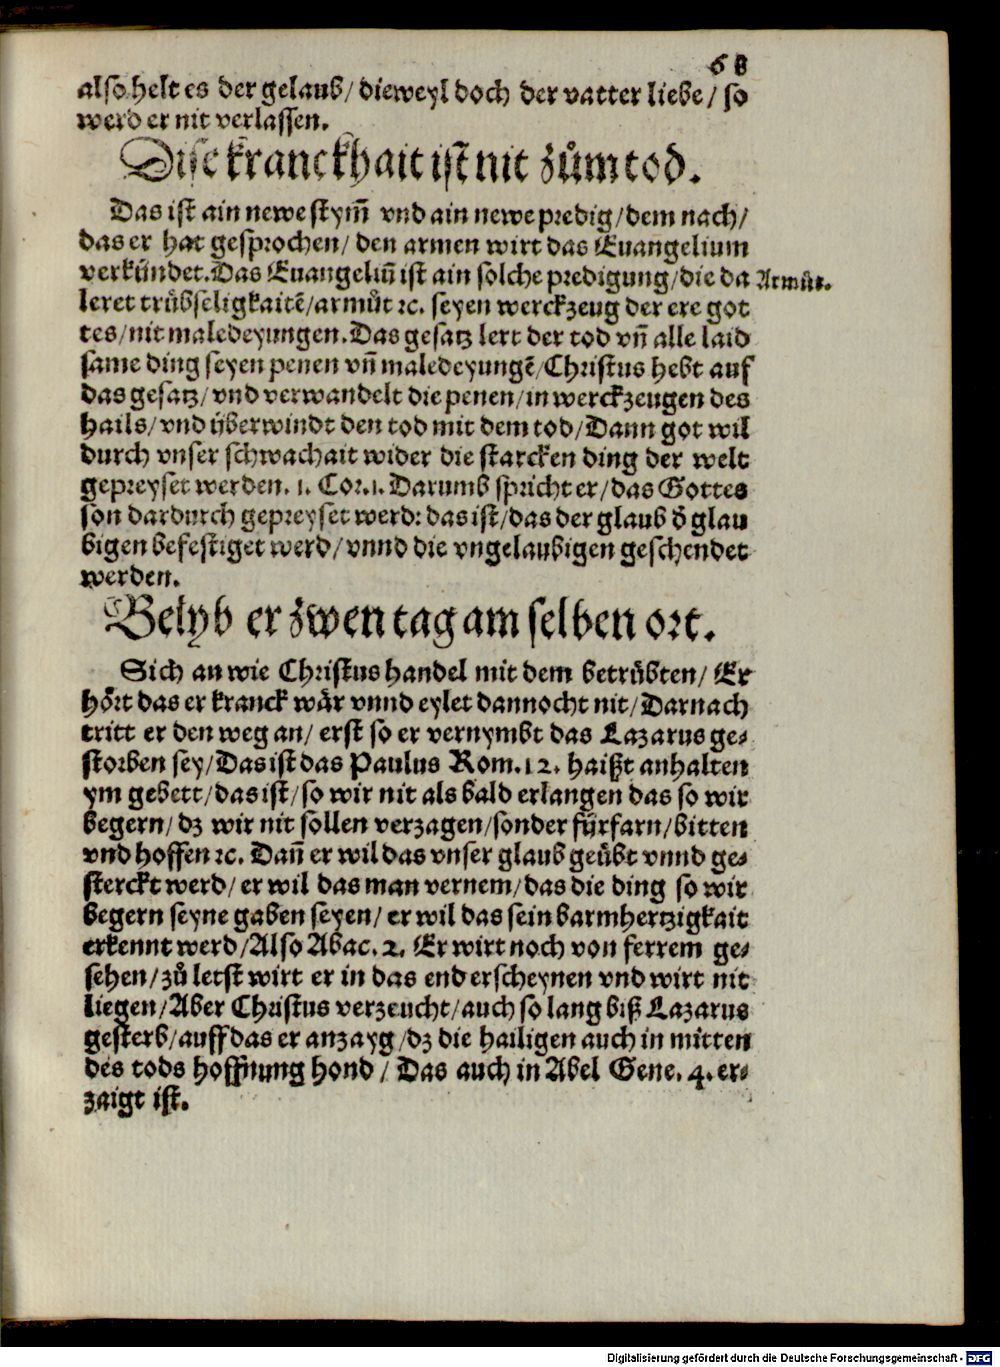 68
also helt es der gelaub/ dieweyl doch der vatter liebe/ so
werd er nit verlassen.
Dise kranckhait ist nit zům tod.
Das ist ain newe stym̃ vnd ain newe predig/dem nach/
das er hat gesprochen/ den armen wirt das Euangelium
verkündet. Das Euangeliũ ist ain solche predigung/die da
Armůt.
leret trübseligkaitẽ/armůt ⁊c. seyen werckzeug der ere got
tes/nit maledeyungen. Das gesatz lert der tod vñ alle laid
same ding seyen penen vñ maledeyungẽ/Christus hebt auf
das gesatz/ vnd verwandelt die penen/in werckzeugen des
hails/vnd überwindt den tod mit dem tod/Dann got wil
durch vnser schwachait wider die starcken ding der welt
gepreyset werden. 1. Cor.1. Darumb spricht er/das Gottes
son dardurch gepreyset werd: das ist/das der glaub d̕ glau
bigen befestiget werd/vnnd die vngelaubigen geschendet
werden.
Belyb er zwen tag am selben ort.
Sich an wie Christus handel mit dem betrübten/ Er
hört das er kranck wär vnnd eylet dannocht nit/Darnach
tritt er den weg an/ erst so er vernymbt das Lazarus ge⸗
storben sey/Das ist das Paulus Rom.12. haißt anhalten
ym gebett/das ist/so wir nit als bald erlangen das so wir
begern/ dz wir nit sollen verzagen/sonder fürfarn/bitten
vnd hoffen ⁊c. Dañ er wil das vnser glaub geübt vnnd ge⸗
sterckt werd/ er wil das man vernem/das die ding so wir
begern seyne gaben seyen/ er wil das sein barmhertzigkait
erkennt werd/Also Abac.2. Er wirt noch von ferrem ge⸗
sehen/zů letst wirt er in das end erscheynen vnd wirt nit
liegen/Aber Christus verzeucht/auch so lang biß Lazarus
gesterb/auff das er anzayg/dz die hailigen auch in mitten
des tods hoffnung hond/ Das auch in Abel Gene.4. er⸗
zaigt ist.
Digitalisierung gefördert durch die Deutsche Forschungsgemeinschaft - DFG